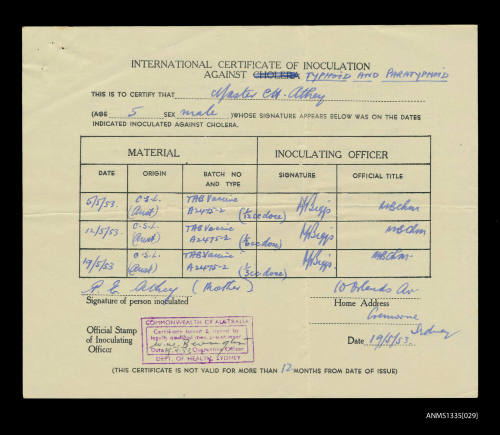 INTERNATIONAL CERTIFICATE OF INOCULATION
AGAINST CHOLERA TYPHOID AND PARATYPHOID
THIS IS TO CERTIFY THAT Master C.H. Athey
(AGE 5 SEX male )WHOSE SIGNATURE APPEARS BELOW WAS ON THE DATES
INDICATED INOCULATED AGAINST CHOLERA.
MATERIAL INOCULATING OFFICER
DATE ORIGIN BATCH NO AND TYPE SIGNATURE OFFICIAL TITLE
5/5/53. C.S.L. (Aust) TAB Vaccine A2475-2 MB Chm
12/5/53. C.S.L. (Aust) TAB Vaccine A2475-2 MB Chm
19/5/53 C.S.L. (Aust) TAB Vaccine A2475-2 MB Chm
P. E. Athey (Mother)
Signature of person inoculated
Home Address
Cremorne
Sydney
Official Stamp
of Inoculating
Officer
COMMONWEALTH OF AUSTRALIA
DEPT. OF HEALTH, SYDNEY
Date 19/5/53.
(THIS CERTIFICATE IS NOT VALID FOR MORE THAN 12 MONTHS FROM DATE OF ISSUE)
ANMS1335[029]